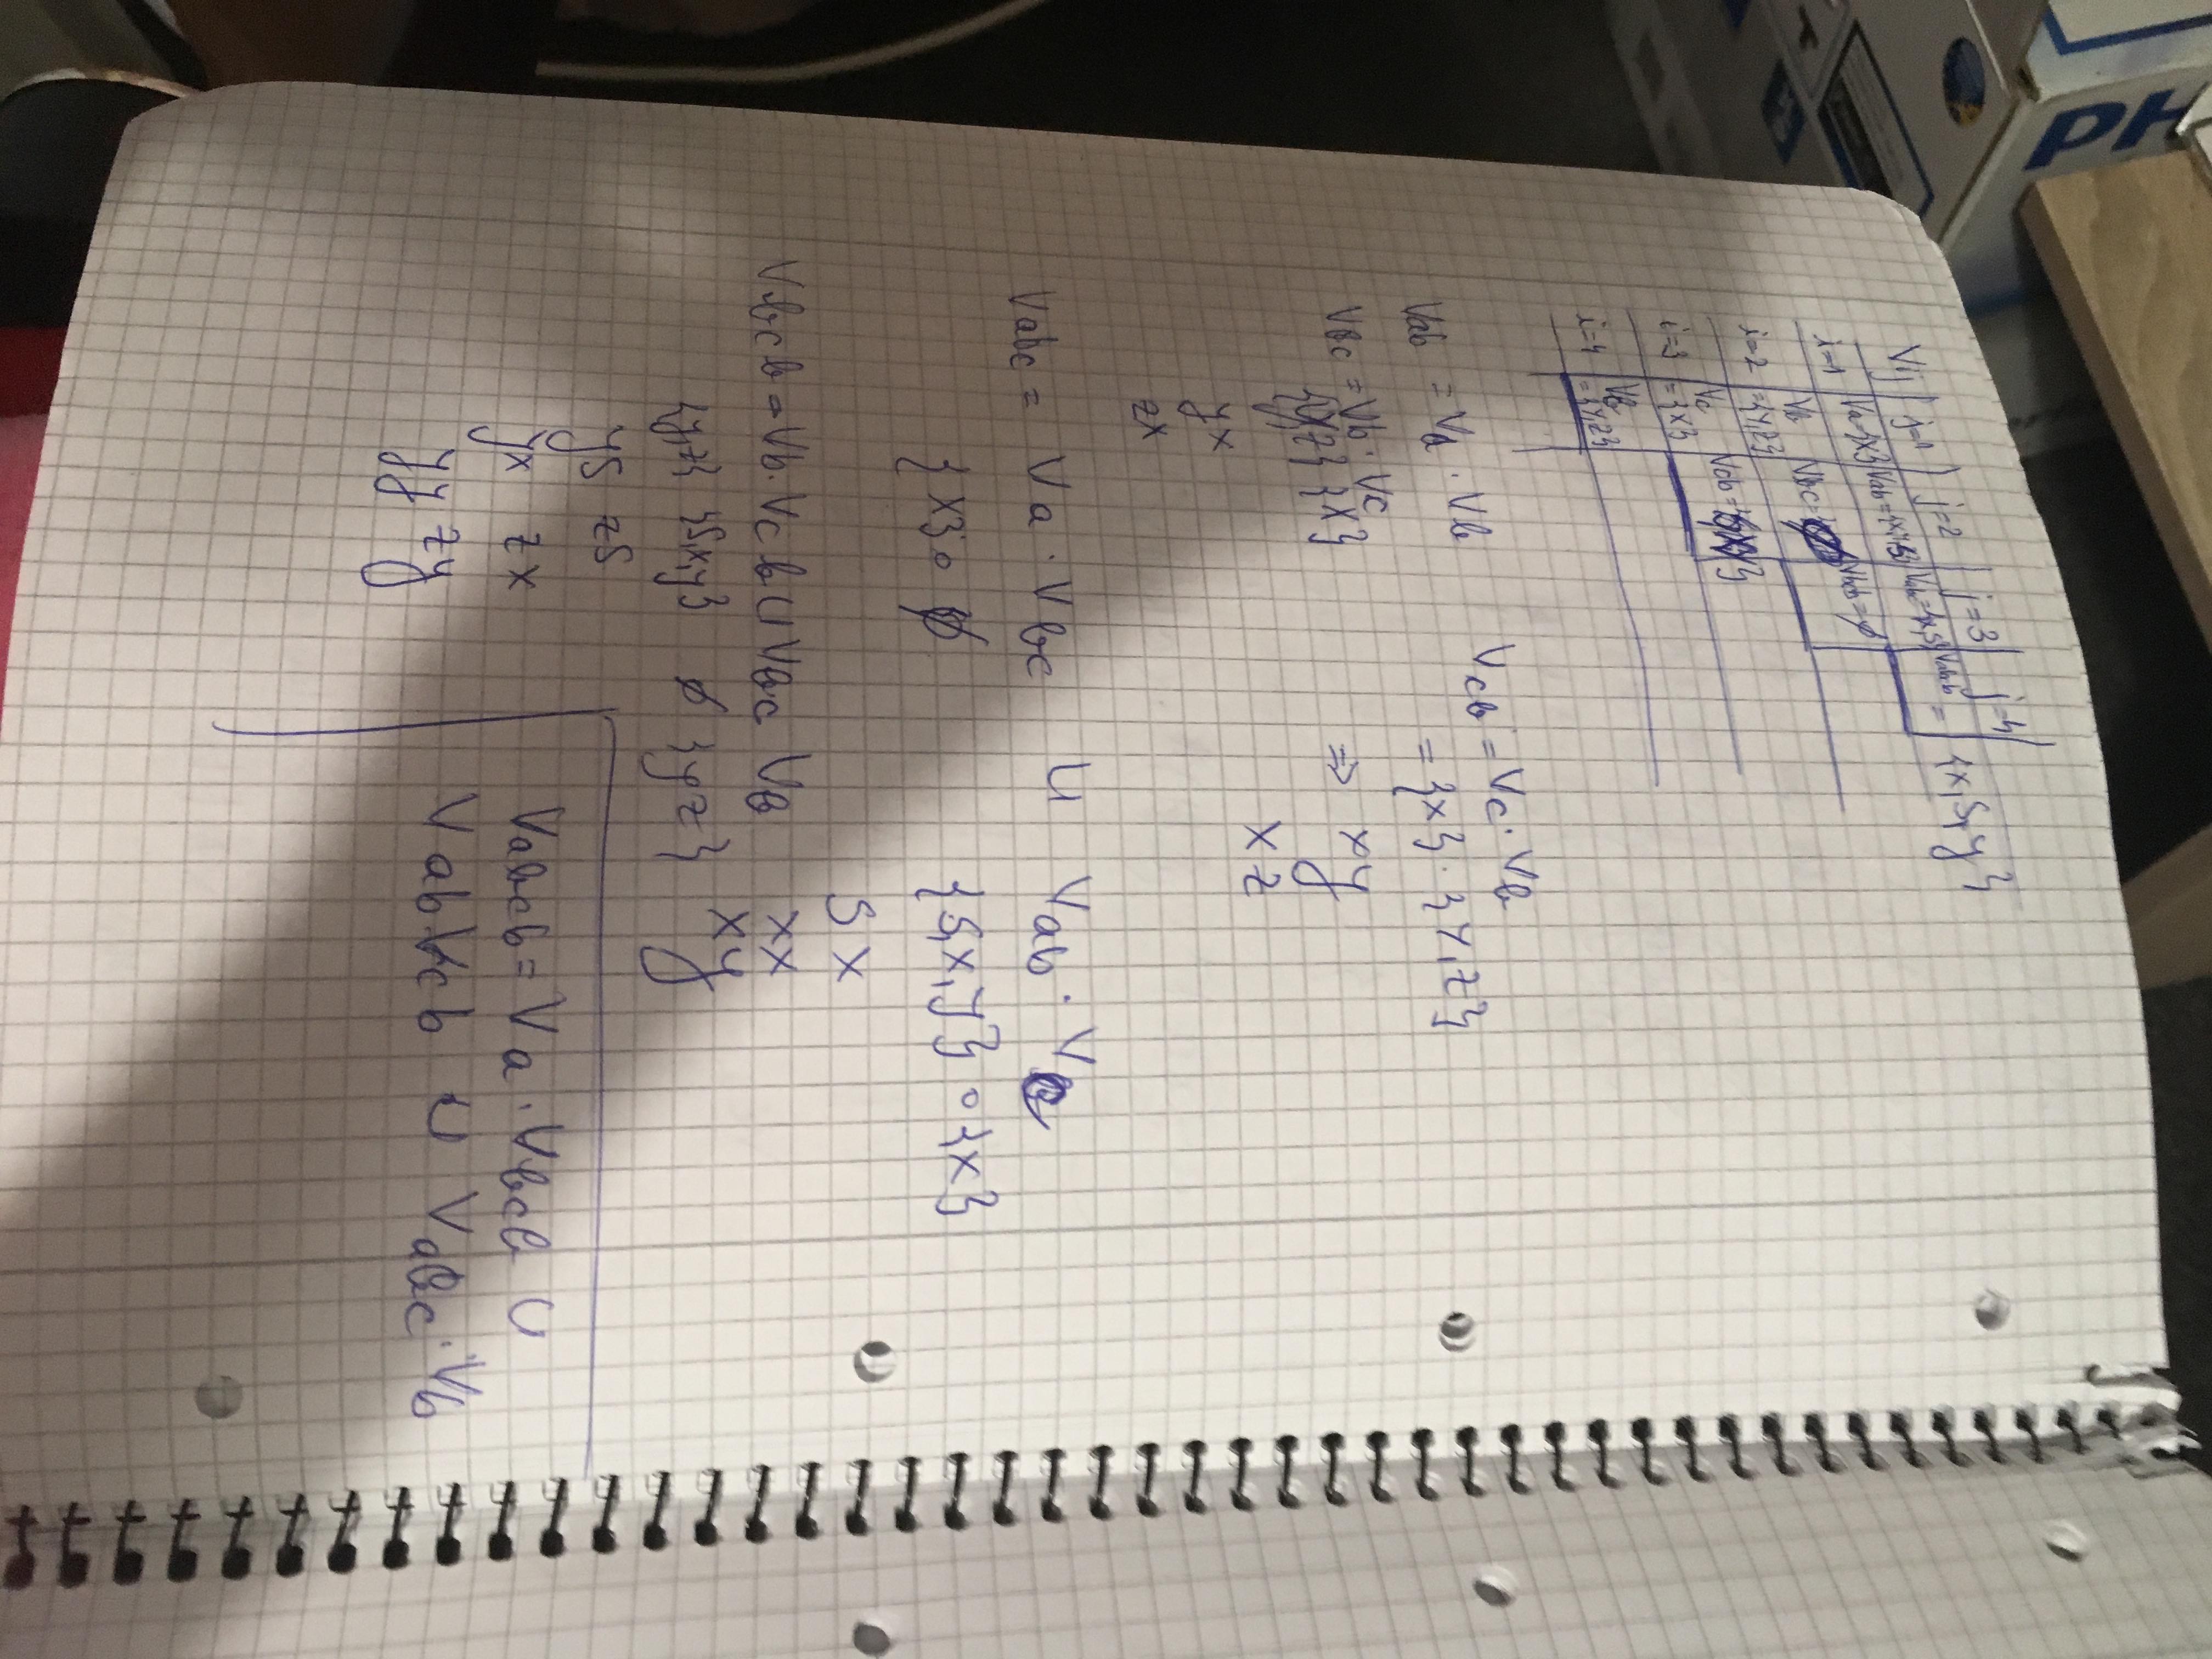 PH
Vij j=1 j=2 j=3 j=4
i=1 Va={x} Vab={x,y,S} Vabc={x,S} Vabcb = {x,S,y}
i=2 Vb ={y,z} Vbc= ∅ Vbcb=∅
i=3 Vc ={x} Vcb= }
i=4 Vb ={y,z}
Vab = Va · Vb
Vcb = Vc · Vb
= {x} · {y,z}
⇒ xy
xz
Vbc = Vb · Vc
{y,z} {x}
yx
zx
Vabc = Va · Vbc ∪ Vab · Vc
{x} ∘ ∅ {S,x,y} ∘ {x}
Sx
xx
xy
Vbcb = Vb · Vcb ∪ Vbc Vb
{y,z} {S,x,y} ∅ {yz}
yS zS
yx zx
yy zy
Vabcb = Va · Vbcb ∪
Vab Vcb ∪ Vabc · Vb